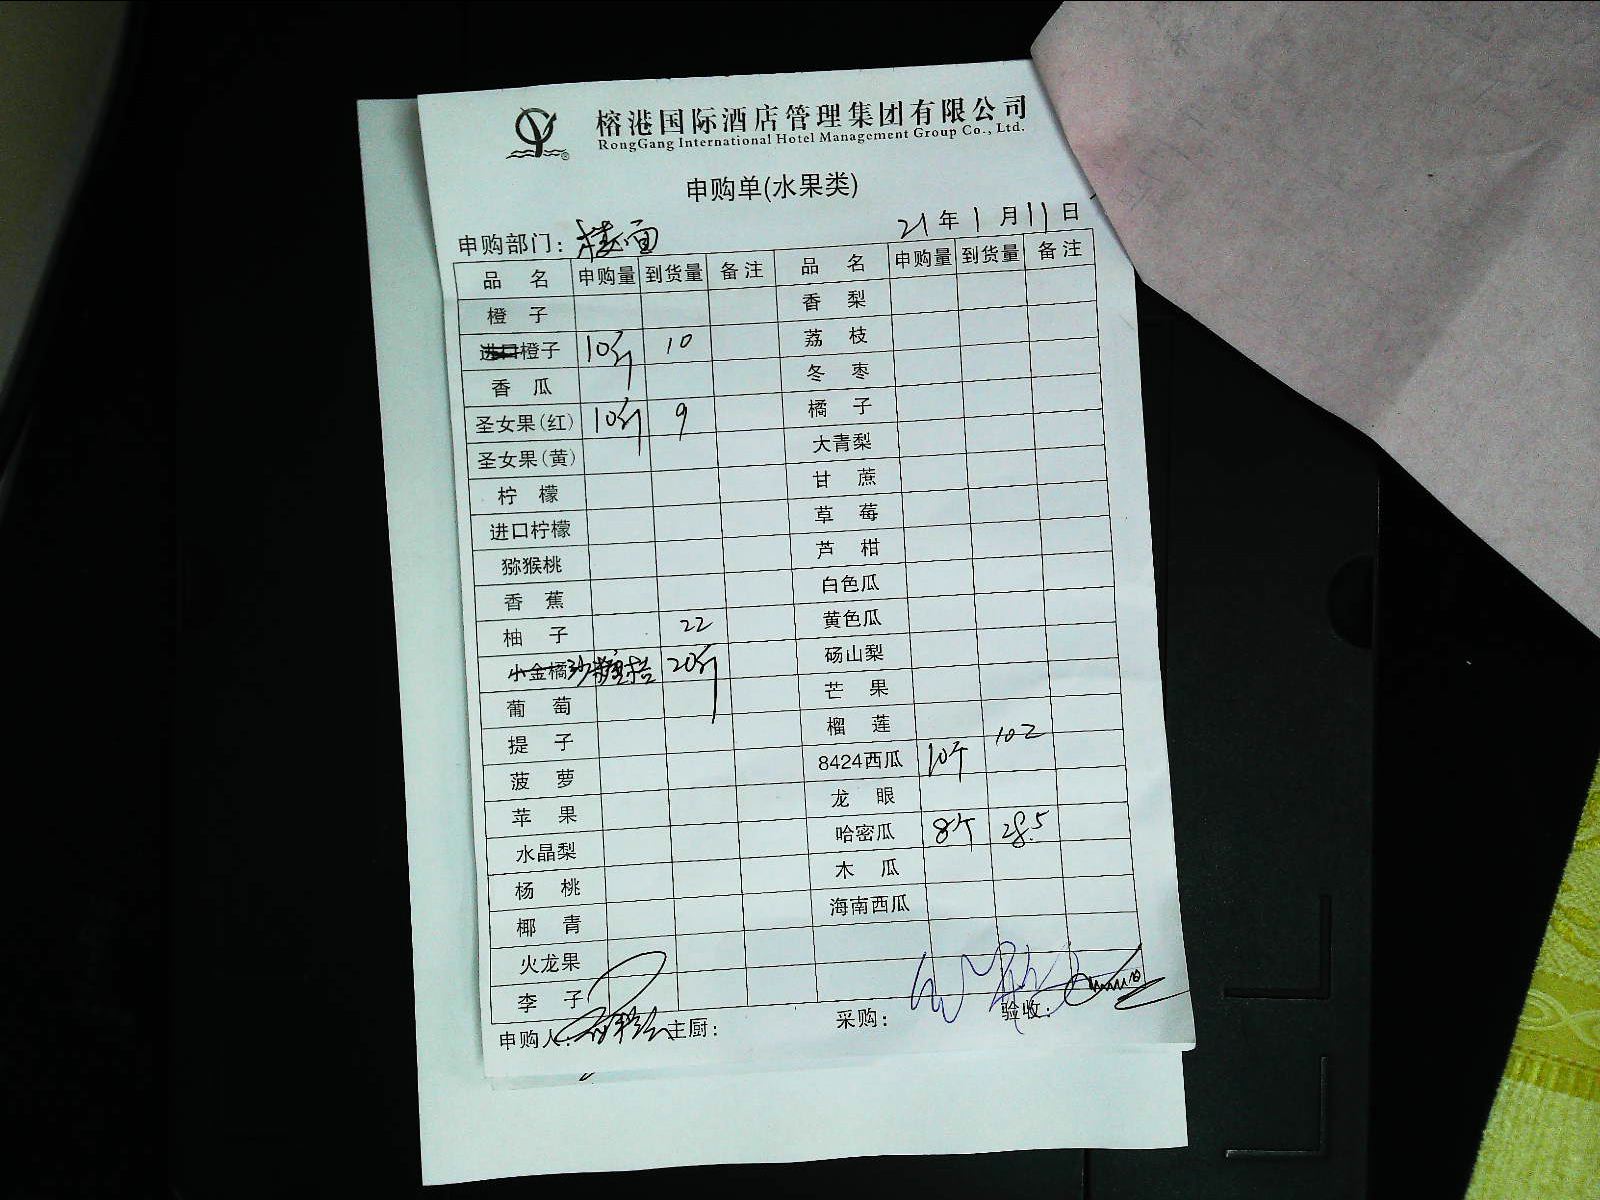 榕港国际酒店管理集团有限公司
RongGang International Hotel Management Group Co., Ltd.
申购单(水果类)
申购部门: 楼面 21年1月11日
品名 申购量 到货量 备注 品名 申购量 到货量 备注
橙子 香梨
进口橙子 10斤 10 荔枝
香瓜 冬枣
圣女果(红) 10斤 9 橘子
圣女果(黄) 大青梨
柠檬 甘蔗
进口柠檬 草莓
猕猴桃 芦柑
香蕉 白色瓜
柚子 22 黄色瓜
小金橘 沙糖桔 20斤 砀山梨
葡萄 芒果
提子 榴莲
菠萝 8424西瓜 10个 102
苹果 龙眼
水晶梨 哈密瓜 8个 28.5
杨桃 木瓜
椰青 海南西瓜
火龙果
李子
申购人: 主厨: 采购: 验收: